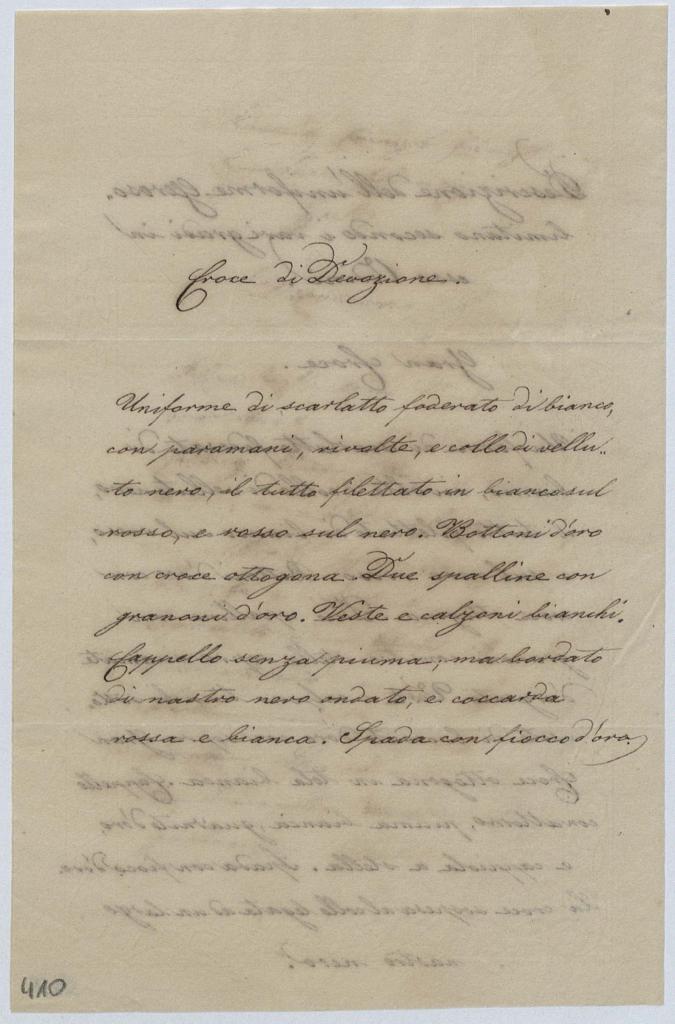 Croce di Devozione.
Uniforme di scarlatto foderato di bianco,
con paramani, rivolte, e collo di vellu„
to nero, il tutto filettato in bianco sul
rosso, e rosso sul nero. Bottoni d'oro
con croce ottogona. Due spalline con
granoni d'oro. Veste e calzoni bianchi.
Cappello senza piuma, ma bordato
di nastro nero ondato, e coccarda
rossa e bianca. Spada con fiocco d'oro.
410